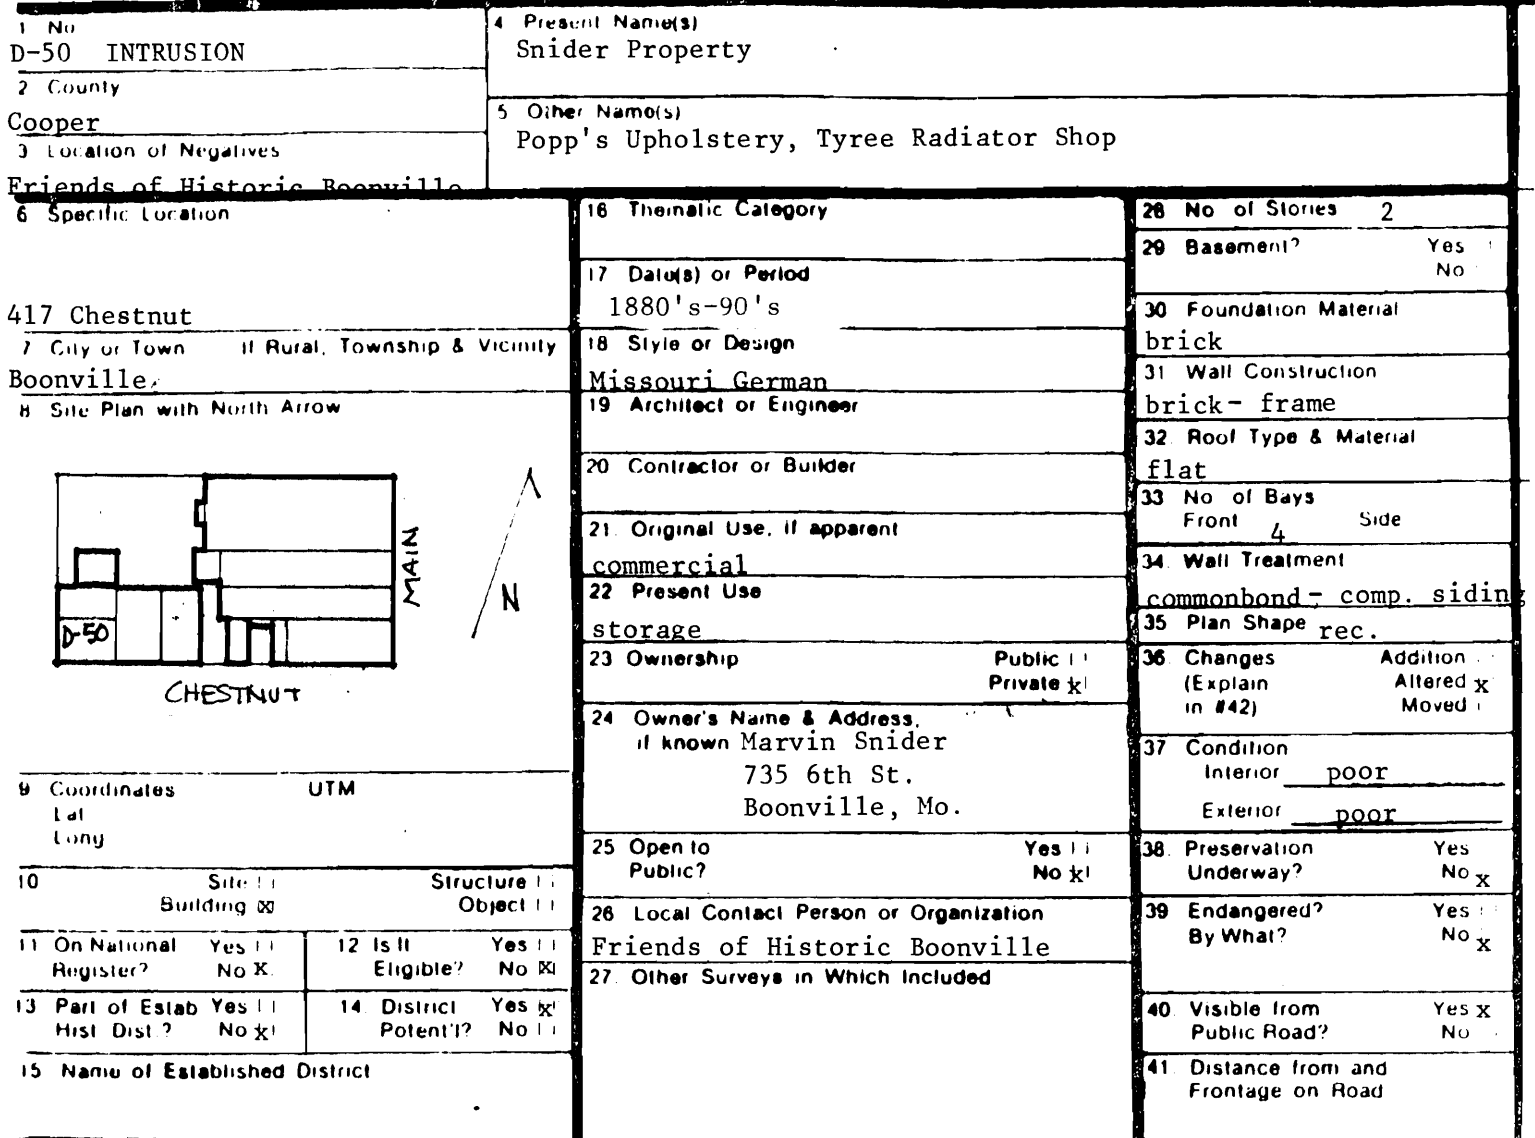 1 No
D-50 INTRUSION
2 County
Cooper
3 Location of Negatives
Friends of Historic Boonville
4 Present Name(s)
Snider Property
5 Other Name(s)
Popp's Upholstery, Tyree Radiator Shop
6 Specific Location
417 Chestnut
7 City or Town If Rural, Township & Vicinity
Boonville
8 Site Plan with North Arrow
MAIN
N
D-50
CHESTNUT
9 Coordinates UTM
Lat
Long
10 Site Structure
Building x Object
11 On National Yes
Register? No X
12 Is It Yes
Eligible? No x
13 Part of Estab Yes
Hist Dist.? No x
14 District Yes x
Potent'l? No
15 Name of Established District
16 Thematic Category
17 Date(s) or Period
1880's-90's
18 Style or Design
Missouri German
19 Architect or Engineer
20 Contractor or Builder
21. Original Use, if apparent
commercial
22 Present Use
storage
23 Ownership Public
Private x
24 Owner's Name & Address,
if known Marvin Snider
735 6th St.
Boonville, Mo.
25 Open to Yes
Public? No x
26 Local Contact Person or Organization
Friends of Historic Boonville
27. Other Surveys in Which Included
28 No of Stories 2
29 Basement? Yes
No
30 Foundation Material
brick
31 Wall Construction
brick- frame
32. Roof Type & Material
flat
33 No of Bays
Front 4 Side
34. Wall Treatment
commonbond - comp. siding
35 Plan Shape rec.
36 Changes Addition
(Explain Altered x
in #42) Moved
37 Condition
Interior poor
Exterior poor
38. Preservation Yes
Underway? No x
39 Endangered? Yes
By What? No x
40. Visible from Yes x
Public Road? No
41. Distance from and
Frontage on Road